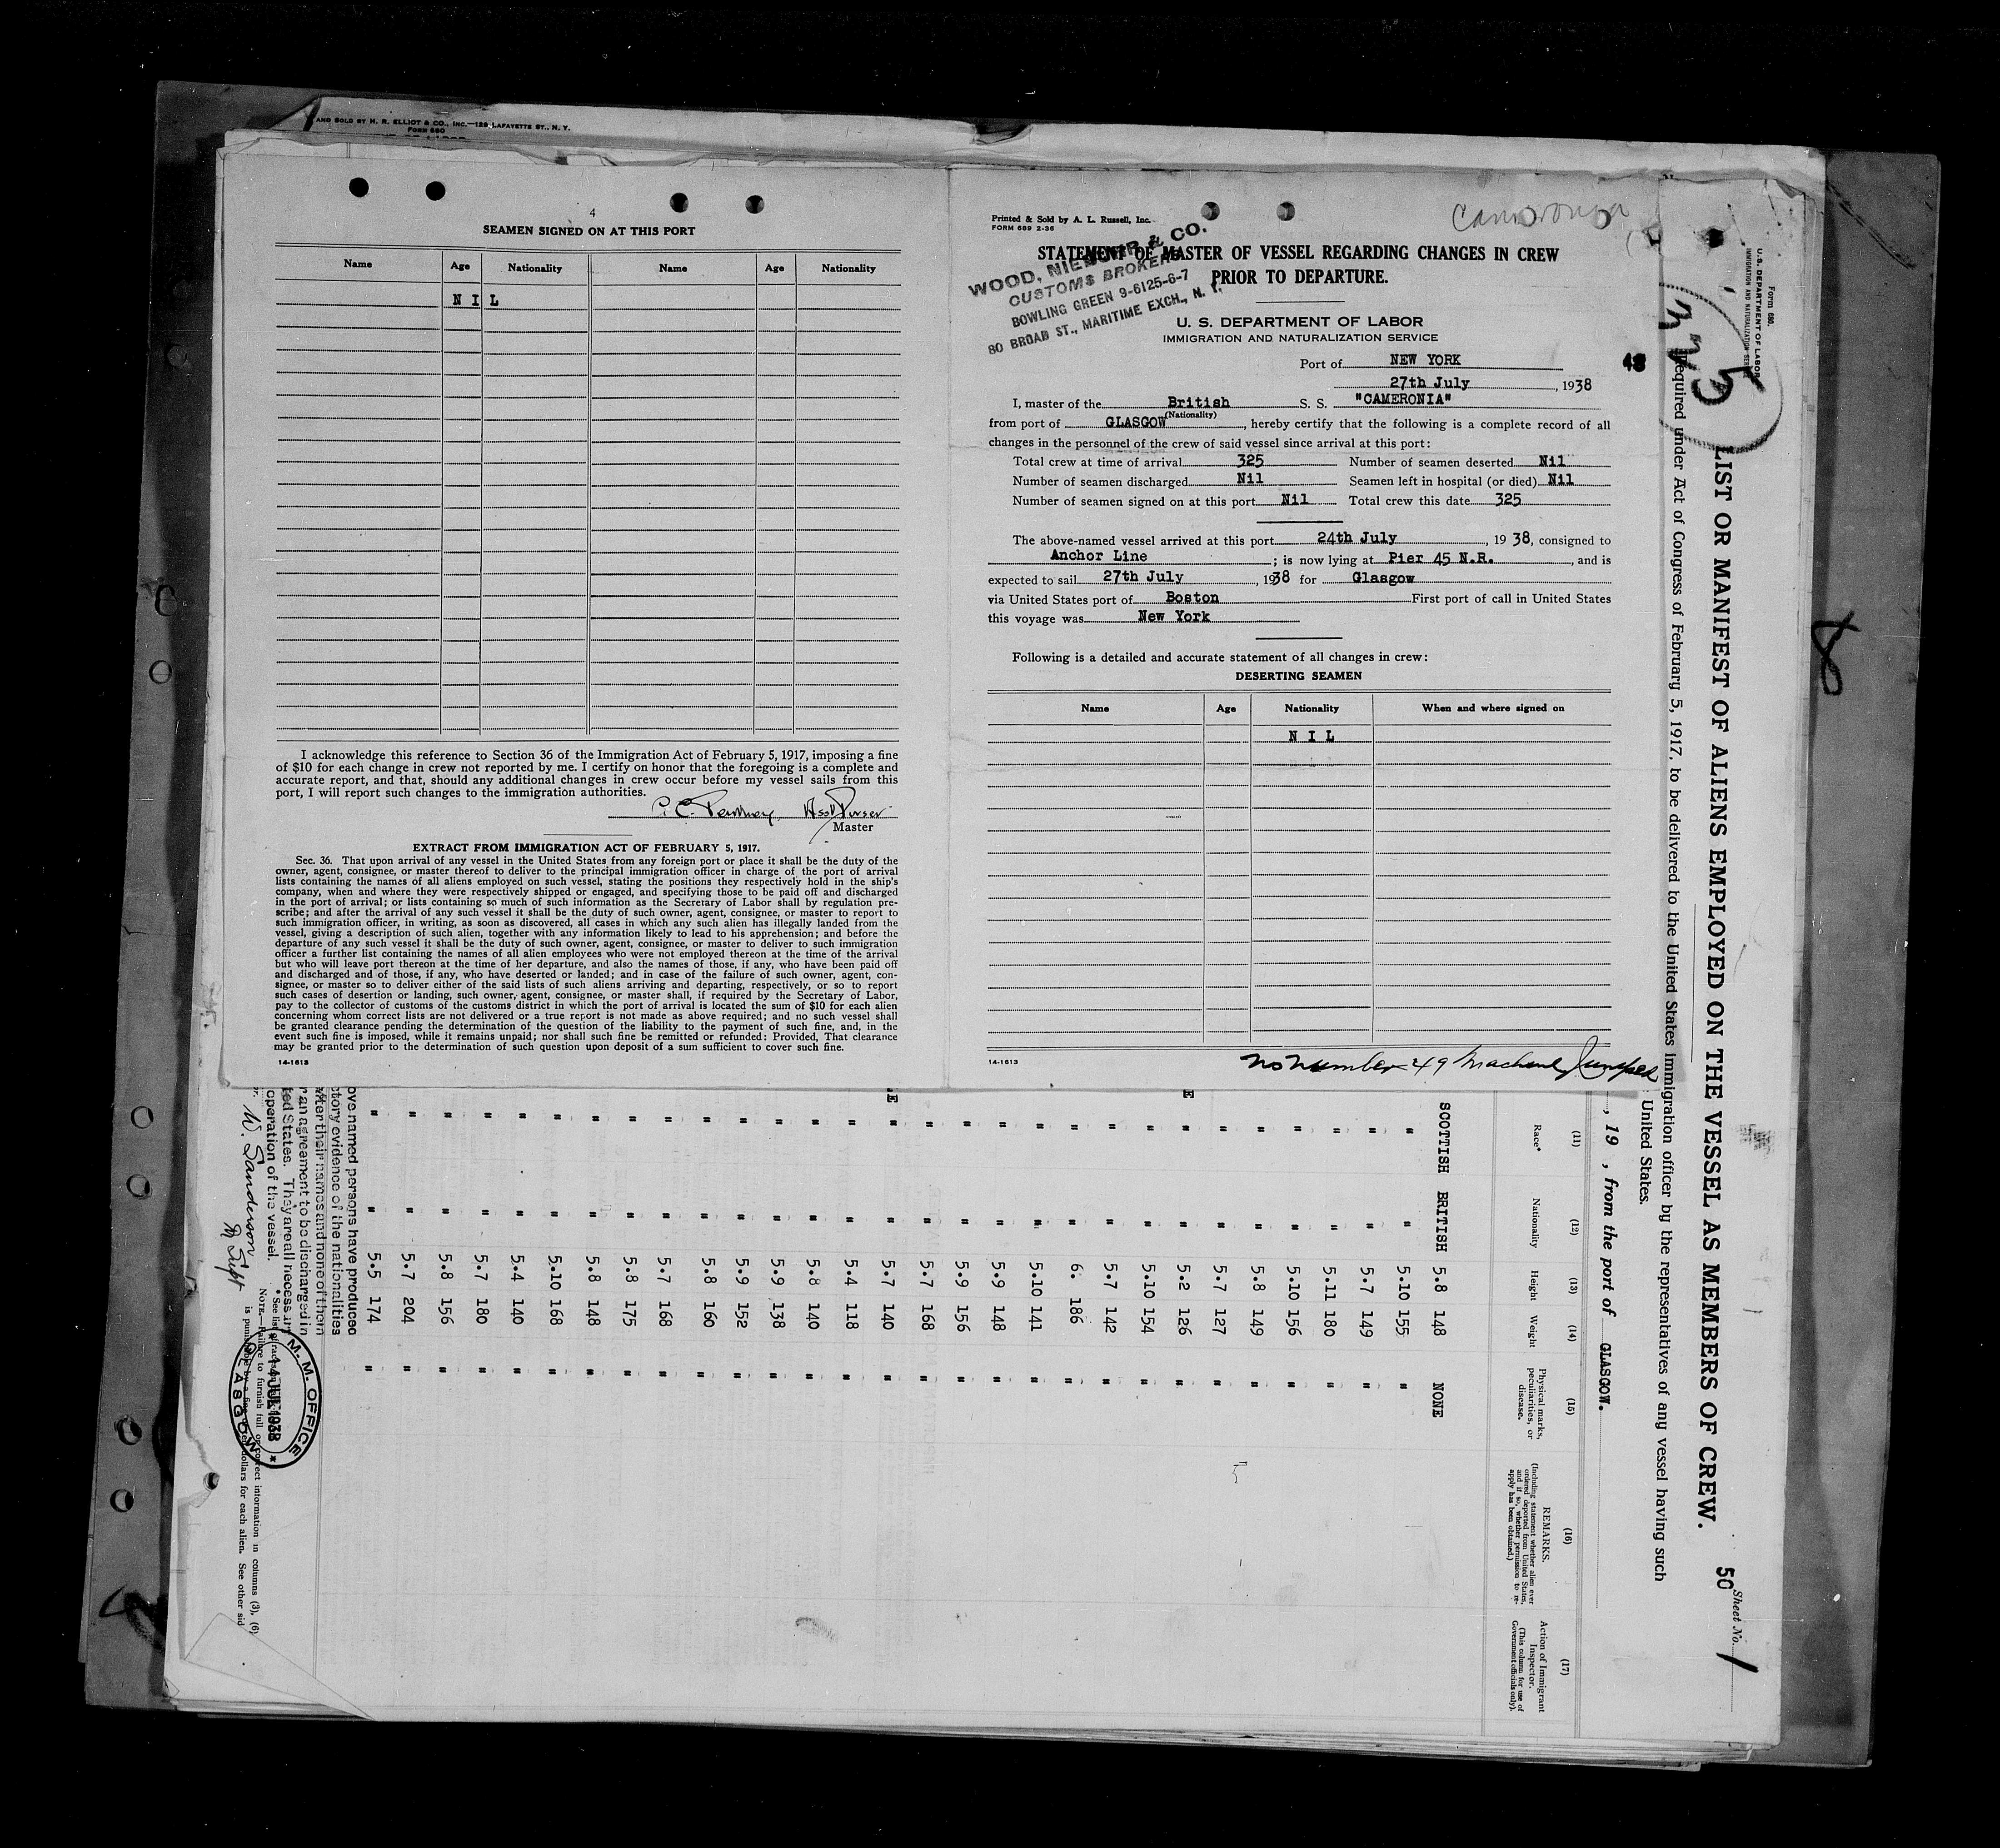 AND SOLD BY H. R. ELLIOT & CO., INC.—129 LAFAYETTE ST., N. Y.
FORM 680
4
SEAMEN SIGNED ON AT THIS PORT
Name Age Nationality Name Age Nationality
N I L
I acknowledge this reference to Section 36 of the Immigration Act of February 5, 1917, imposing a fine
of $10 for each change in crew not reported by me. I certify on honor that the foregoing is a complete and
accurate report, and that, should any additional changes in crew occur before my vessel sails from this
port, I will report such changes to the immigration authorities.
Asst Purser
Master
EXTRACT FROM IMMIGRATION ACT OF FEBRUARY 5, 1917.
Sec. 36. That upon arrival of any vessel in the United States from any foreign port or place it shall be the duty of the
owner, agent, consignee, or master thereof to deliver to the principal immigration officer in charge of the port of arrival
lists containing the names of all aliens employed on such vessel, stating the positions they respectively hold in the ship's
company, when and where they were respectively shipped or engaged, and specifying those to be paid off and discharged
in the port of arrival; or lists containing so much of such information as the Secretary of Labor shall by regulation pre-
scribe; and after the arrival of any such vessel it shall be the duty of such owner, agent, consignee, or master to report to
such immigration officer, in writing, as soon as discovered, all cases in which any such alien has illegally landed from the
vessel, giving a description of such alien, together with any information likely to lead to his apprehension; and before the
departure of any such vessel it shall be the duty of such owner, agent, consignee, or master to deliver to such immigration
officer a further list containing the names of all alien employees who were not employed thereon at the time of the arrival
but who will leave port thereon at the time of her departure, and also the names of those, if any, who have been paid off
and discharged and of those, if any, who have deserted or landed; and in case of the failure of such owner, agent, con-
signee, or master so to deliver either of the said lists of such aliens arriving and departing, respectively, or so to report
such cases of desertion or landing, such owner, agent, consignee, or master shall, if required by the Secretary of Labor,
pay to the collector of customs of the customs district in which the port of arrival is located the sum of $10 for each alien
concerning whom correct lists are not delivered or a true report is not made as above required; and no such vessel shall
be granted clearance pending the determination of the question of the liability to the payment of such fine, and, in the
event such fine is imposed, while it remains unpaid; nor shall such fine be remitted or refunded: Provided, That clearance
may be granted prior to the determination of such question upon deposit of a sum sufficient to cover such fine.
14-1613
Printed & Sold by A. L. Russell, Inc.
FORM 689 2-36
Cameronia
STATEMENT OF MASTER OF VESSEL REGARDING CHANGES IN CREW
PRIOR TO DEPARTURE.
WOOD, NIEBUHR & CO.
CUSTOMS BROKERS
BOWLING GREEN 9-6125-6-7
80 BROAD ST., MARITIME EXCH., N. Y.
U. S. DEPARTMENT OF LABOR
IMMIGRATION AND NATURALIZATION SERVICE
Port of NEW YORK
27th July, 1938
I, master of the British S. S. "CAMERONIA"
(Nationality)
from port of GLASGOW, hereby certify that the following is a complete record of all
changes in the personnel of the crew of said vessel since arrival at this port:
Total crew at time of arrival 325 Number of seamen deserted Nil
Number of seamen discharged Nil Seamen left in hospital (or died) Nil
Number of seamen signed on at this port Nil Total crew this date 325
The above-named vessel arrived at this port 24th July, 19 38, consigned to
Anchor Line; is now lying at Pier 45 N.R., and is
expected to sail 27th July, 1938 for Glasgow
via United States port of Boston First port of call in United States
this voyage was New York
Following is a detailed and accurate statement of all changes in crew:
DESERTING SEAMEN
Name Age Nationality When and where signed on
N I L
14-1613
no number 49
48
325
Form 680.
U. S. DEPARTMENT OF LABOR
IMMIGRATION AND NATURALIZATION SER
50
Sheet No. 1
LIST OR MANIFEST OF ALIENS EMPLOYED ON THE VESSEL AS MEMBERS OF CREW.
Required under Act of Congress of February 5, 1917, to be delivered to the United States immigration officer by the representatives of any vessel having such
United States.
, 19 , from the port of GLASGOW.
(11) (12) (13) (14) (15) (16) (17)
Race* Nationality Height Weight Physical marks, peculiarities, or disease.
REMARKS.
(Including statement whether alien ever ordered deported from United States, and if so, whether permission to re-apply has been obtained.)
Action of Immigrant Inspector.
(This column for use of Government officials only).
SCOTTISH BRITISH 5.8 148 NONE
" " 5.10 155 "
" " 5.7 149 "
" " 5.11 180 "
" " 5.10 156 "
" " 5.8 149 "
" " 5.7 127 "
E " " 5.2 126 "
" " 5.10 154 "
" " 5.7 142 "
" " 6. 186 "
" " 5.10 141 "
" " 5.9 148 "
" " 5.9 156 "
" " 5.7 168 "
" " 5.7 140 "
" " 5.4 118 "
" " 5.8 140 "
" " 5.9 138 "
" " 5.9 152 "
" " 5.8 160 "
" " 5.7 168 "
" " 5.8 175 "
" " 5.8 148 "
" " 5.10 168 "
" " 5.4 140 "
" " 5.7 180 "
" " 5.8 156 "
" " 5.7 204 "
" " 5.5 174 "
ove named persons have produced
ctory evidence of the nationalities
after their names and none of them
r an agreement to be discharged in
ted States. They are all necessary
operation of the vessel.
W. Sanderson
* See list of races
NOTE.—Failure to furnish full or correct information in columns (3), (6)
is punishable by a fine of ten dollars for each alien. See other sid
M. M. OFFICE
14 JUL 1938
GLASGOW